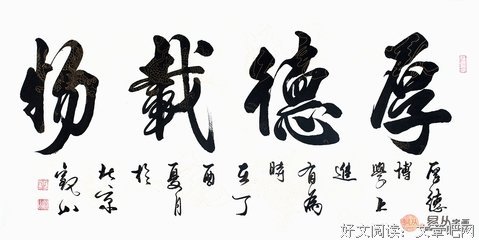 厚德載物
厚德
博
學上
進
有為
時
在丁
酉
夏月
於
北京
觀山
易从字画
好文阅读：文章吧网